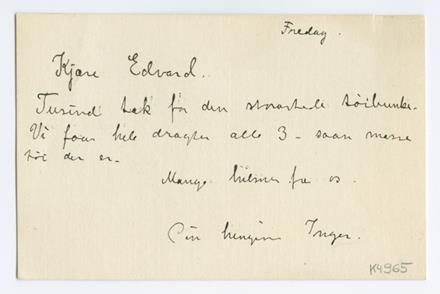 Fredag.
Kjære Edvard.
Tusind tak for den storartede töibunke.
Vi faar hele dragter alle 3 – saan masse
töi der er.
Mange hilsner fra os.
Din hengivn Inger.
K4965